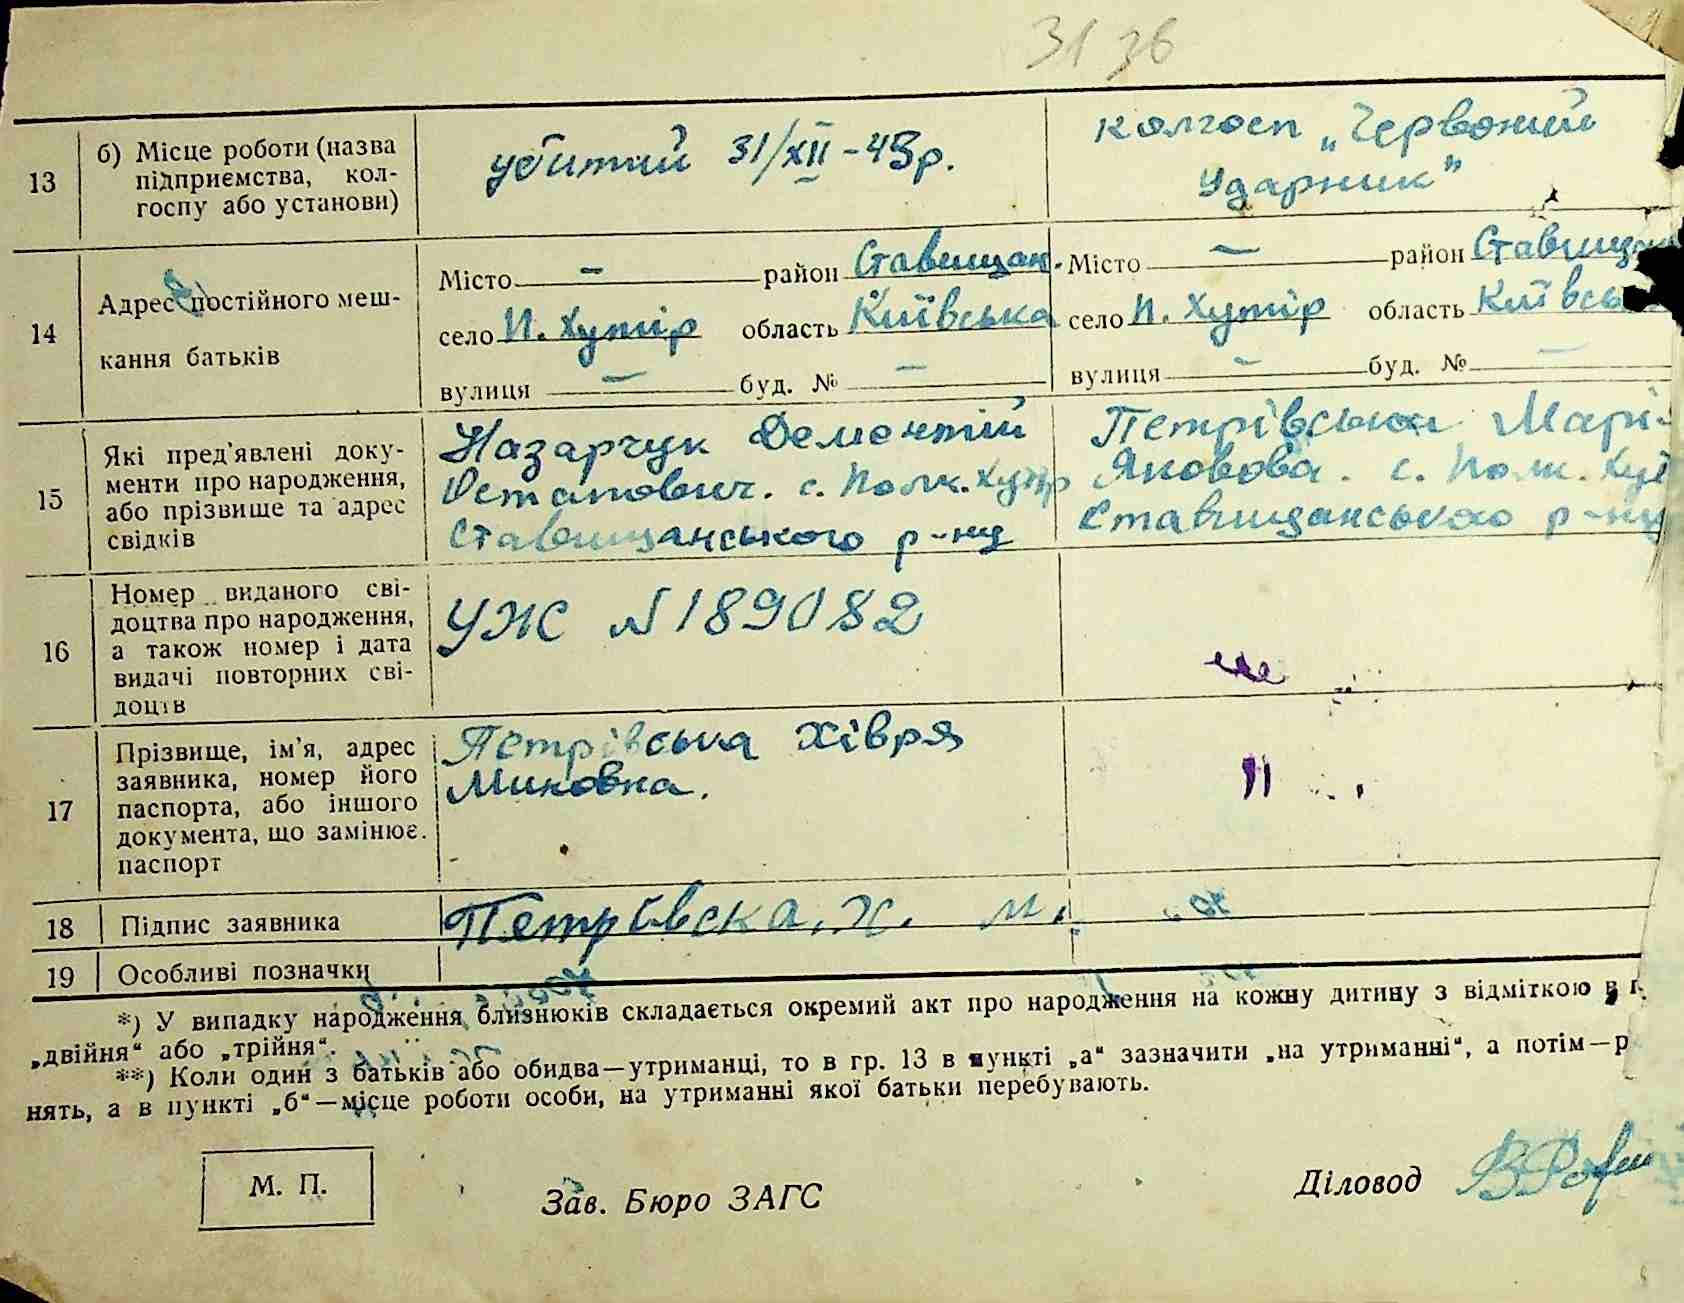 31 36
13
б) Місце роботи (назва
підприємства, кол-
госпу або установи)
убитий 31/XII - 43 р.
колгосп „Червоний
Ударник”
14
Адрес постійного меш-
кання батьків
Місто — район Ставищан.
село П. Хутір область Київська
вулиця — буд. № —
Місто — район Ставищан
село П. Хутір область Київсь
вулиця — буд. № —
15
Які пред’явлені доку-
менти про народження,
або прізвище та адрес
свідків
Назарчук Дементій
Остапович. с. Полк. Хутір
Ставищанського р-ну
Петрівська Марі-
Яковова. с. Полк. Хут
Ставищанського р-ну
16
Номер виданого сві-
доцтва про народження,
а також номер і дата
видачі повторних сві-
доцтв
УЖ N 189082
17
Прізвище, ім’я, адрес
заявника, номер його
паспорта, або іншого
документа, що замінює.
паспорт
Петрівська Хівря
Миковна.
18
Підпис заявника
Петрівска. Х. М.
19
Особливі позначки
*) У випадку народження близнюків складається окремий акт про народження на кожну дитину з відміткою в г
„двійня“ або „трійня“.
**) Коли один з батьків або обидва—утриманці, то в гр. 13 в пункті „а“ зазначити „на утриманні“, а потім—р
нять, а в пункті „б“—місце роботи особи, на утриманні якої батьки перебувають.
М. П.
Зав. Бюро ЗАГС
Діловод